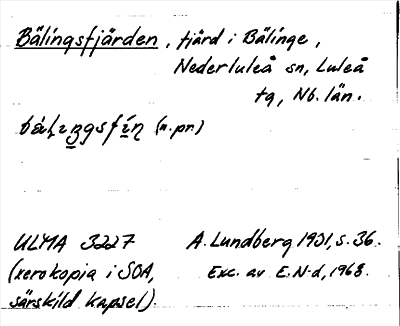 Bälingsfjärden, fjärd i Bälinge,
Nederluleå sn, Luleå
tg, Nb. län.
(n.pr.)
ULMA 3227 A. Lundberg 1901, s. 36.
(xerokopia i SOA, Exc. av E. N-d, 1968.
särskild kapsel).